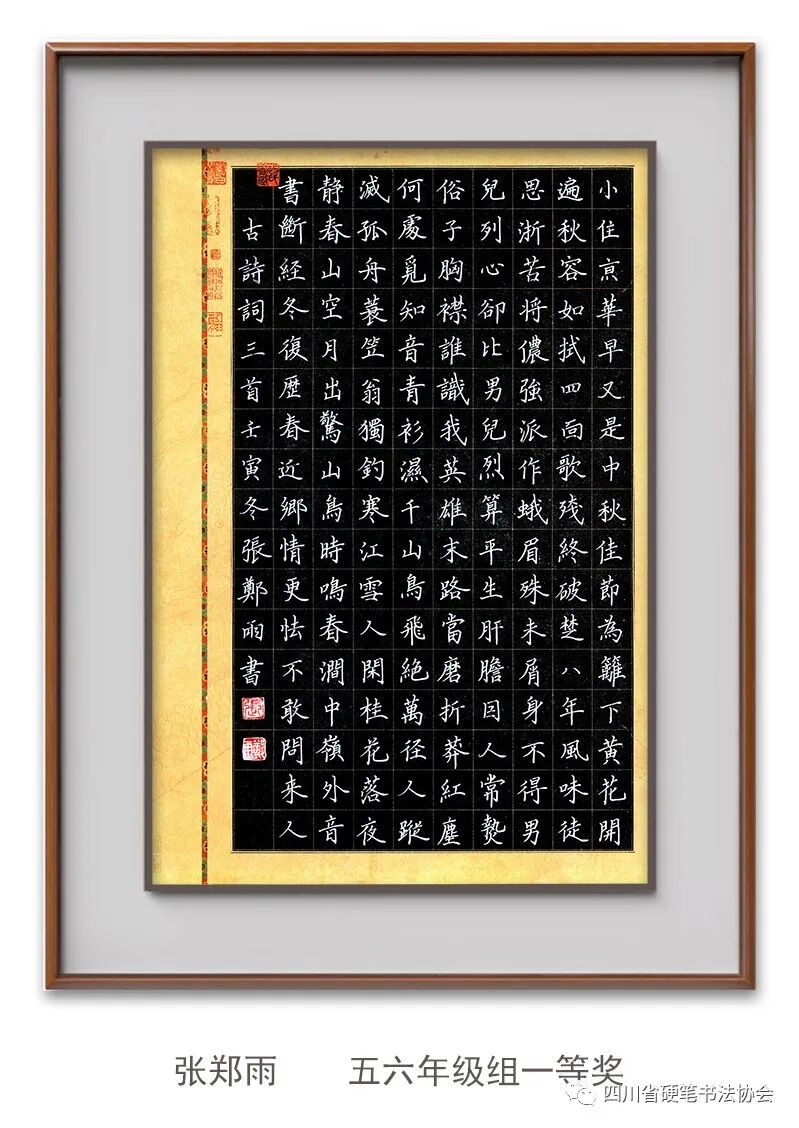 小住亰華早又是中秋佳節為籬下黃花開
遍秋容如拭四靣歌残終破楚八年風味徒
思浙苦將儂強派作蛾眉殊未屑身不得男
兒列心卻比男兒烈算平生肝膽囙人常熱
俗子胸襟誰識我英雄末路當磨折莽紅塵
何處覓知音青衫濕千山鳥飛絕萬径人蹤
滅孤舟蓑笠翁獨釣寒江雪人閑桂花落夜
静春山空月出驚山鳥時鳴春澗中嶺外音
書斷經冬復歷春近鄉情更怯不敢問來人
古詩詞三首壬寅冬張鄭雨書
张郑雨 五六年级组一等奖
四川省硬笔书法协会